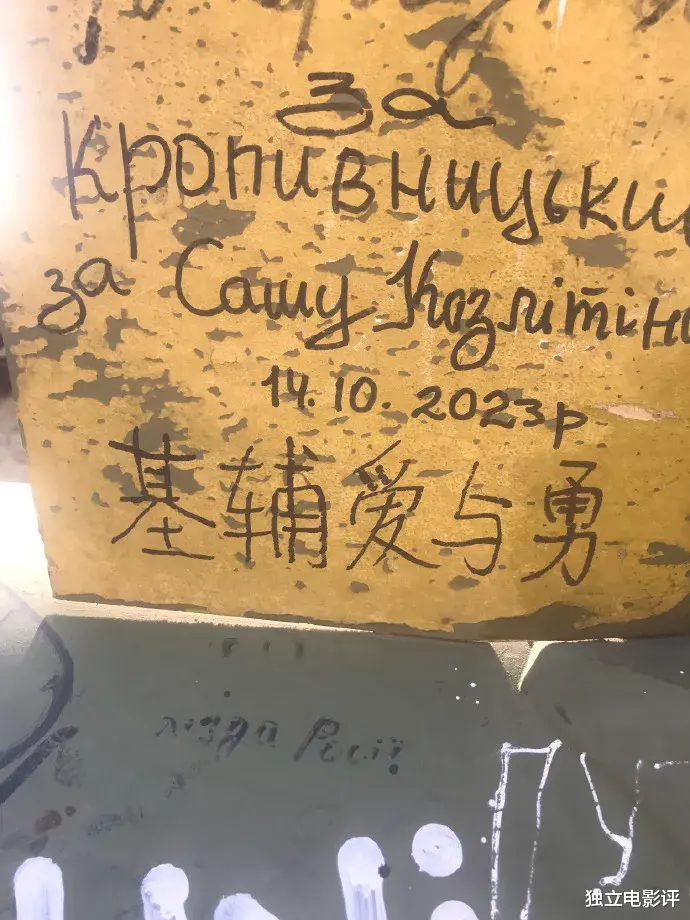 за
Кропивницьки
за Сашу Козлітін
14.10.2023р
基辅爱与勇
пізда Росії
独立电影评